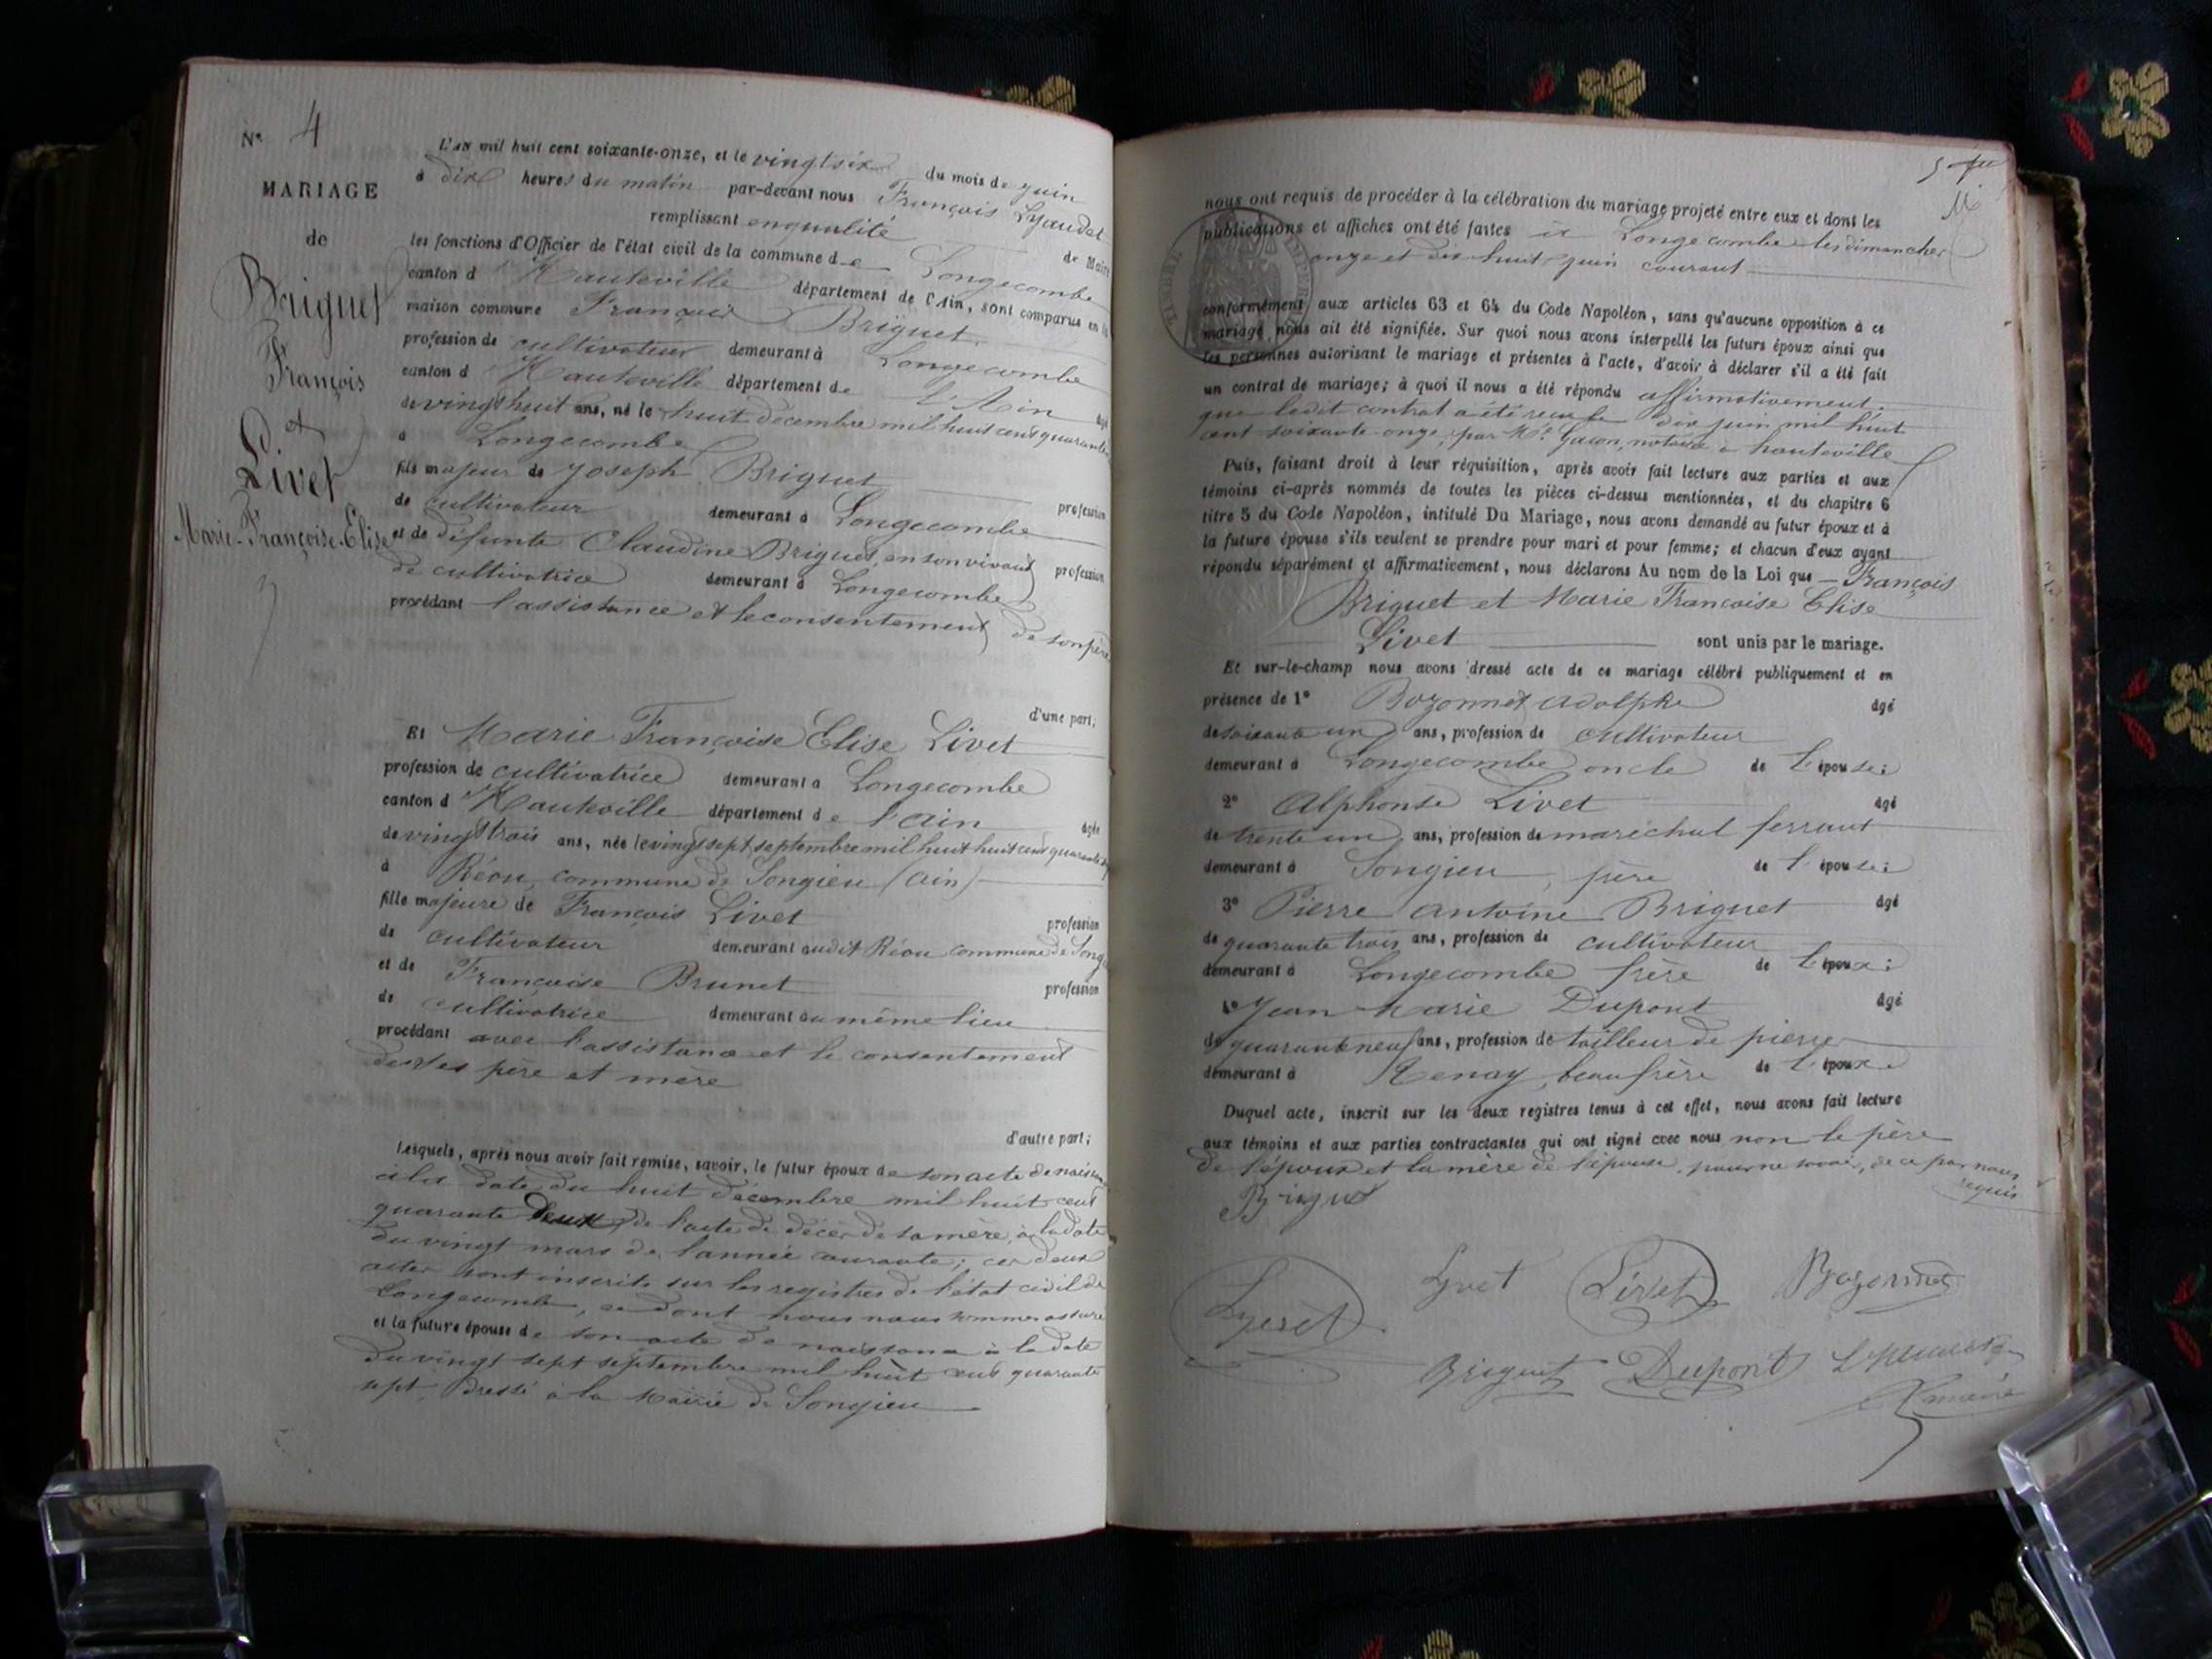 N° 4
MARIAGE
de
Briguet
François
et
Livet
Marie-Françoise-Elise
L'AN mil huit cent soixante-onze, et le vingt six du mois de juin
à dix heures du matin par-devant nous François Lyaudet
remplissant en qualité de Maire
les fonctions d'Officier de l'état civil de la commune de Longecombe
canton d'Hauteville département de l'Ain, sont comparus en la
maison commune François Briguet
profession de cultivateur demeurant à Longecombe
canton d'Hauteville département de l'Ain âgé
de vingt huit ans, né le huit décembre mil huit cent quarante
à Longecombe
fils majeur de Joseph Briguet profession
de cultivateur demeurant à Longecombe
et de défunte Claudine Briguet, en son vivant profession
de cultivatrice demeurant à Longecombe
procédant l'assistance et le consentement de son père
d'une part;
Et Marie Françoise Elise Livet
profession de cultivatrice demeurant à Longecombe
canton d'Hauteville département de l'Ain âgée
de vingt trois ans, née le vingt sept septembre mil huit huit cent quarante
à Réou, commune de Songieu (Ain)
fille majeure de François Livet profession
de cultivateur demeurant audit Réou commune de Song
et de Françoise Brunet profession
de cultivatrice demeurant au même lieu
procédant avec l'assistance et le consentement
de ses père et mère
d'autre part;
Lesquels, après nous avoir fait remise, savoir, le futur époux de son acte de naissance
à la date du huit décembre mil huit cent
quarante deux, de l'acte de décès de sa mère, à la date
du vingt mars de l'année courante; ces deux
actes sont inscrits sur les registres de l'état civil de
Longecombe, ce dont nous nous sommes assuré
et la future épouse de son acte de naissance à la date
du vingt sept septembre mil huit cent quarante
sept, dressé à la Mairie de Songieu
nous ont requis de procéder à la célébration du mariage projeté entre eux et dont les
publications et affiches ont été faites à Longecombe les dimanches
onze et dix huit juin courant
conformément aux articles 63 et 64 du Code Napoléon, sans qu'aucune opposition à ce
mariage nous ait été signifiée. Sur quoi nous avons interpellé les futurs époux ainsi que
les personnes autorisant le mariage et présentes à l'acte, d'avoir à déclarer s'il a été fait
un contrat de mariage; à quoi il nous a été répondu affirmativement.
que ledit contrat a été reçu le dix juin mil huit
cent soixante onze, par Me Gacon, notaire à hauteville
Puis, faisant droit à leur réquisition, après avoir fait lecture aux parties et aux
témoins ci-après nommés de toutes les pièces ci-dessus mentionnées, et du chapitre 6
titre 5 du Code Napoléon, intitulé Du Mariage, nous avons demandé au futur époux et à
la future épouse s'ils veulent se prendre pour mari et pour femme; et chacun d'eux ayant
répondu séparément et affirmativement, nous déclarons Au nom de la Loi que François
Briguet et Marie Francoise Elise
Livet sont unis par le mariage.
Et sur-le-champ nous avons dressé acte de ce mariage célébré publiquement et en
présence de 1° Bozonnet adolphe âgé
de soixante un ans, profession de cultivateur
demeurant à Longecombe oncle de l'épouse;
2° Alphonse Livet âgé
de trente un ans, profession de maréchal ferrant
demeurant à Songieu, frère de l'épouse;
3° Pierre antoine Briguet âgé
de quarante trois ans, profession de cultivateur
demeurant à Longecombe frère de l'époux;
4° Jean Marie Dupont âgé
de quarante neuf ans, profession de tailleur de pierre
demeurant à Tenay, beau frère de l'époux.
Duquel acte, inscrit sur les deux registres tenus à cet effet, nous avons fait lecture
aux témoins et aux parties contractantes qui ont signé avec nous non le père
de l'époux et la mère de l'épouse, pour ne savoir, de ce par nous
requis
Briguet
Livet
Bozonnet
Briguet Dupont